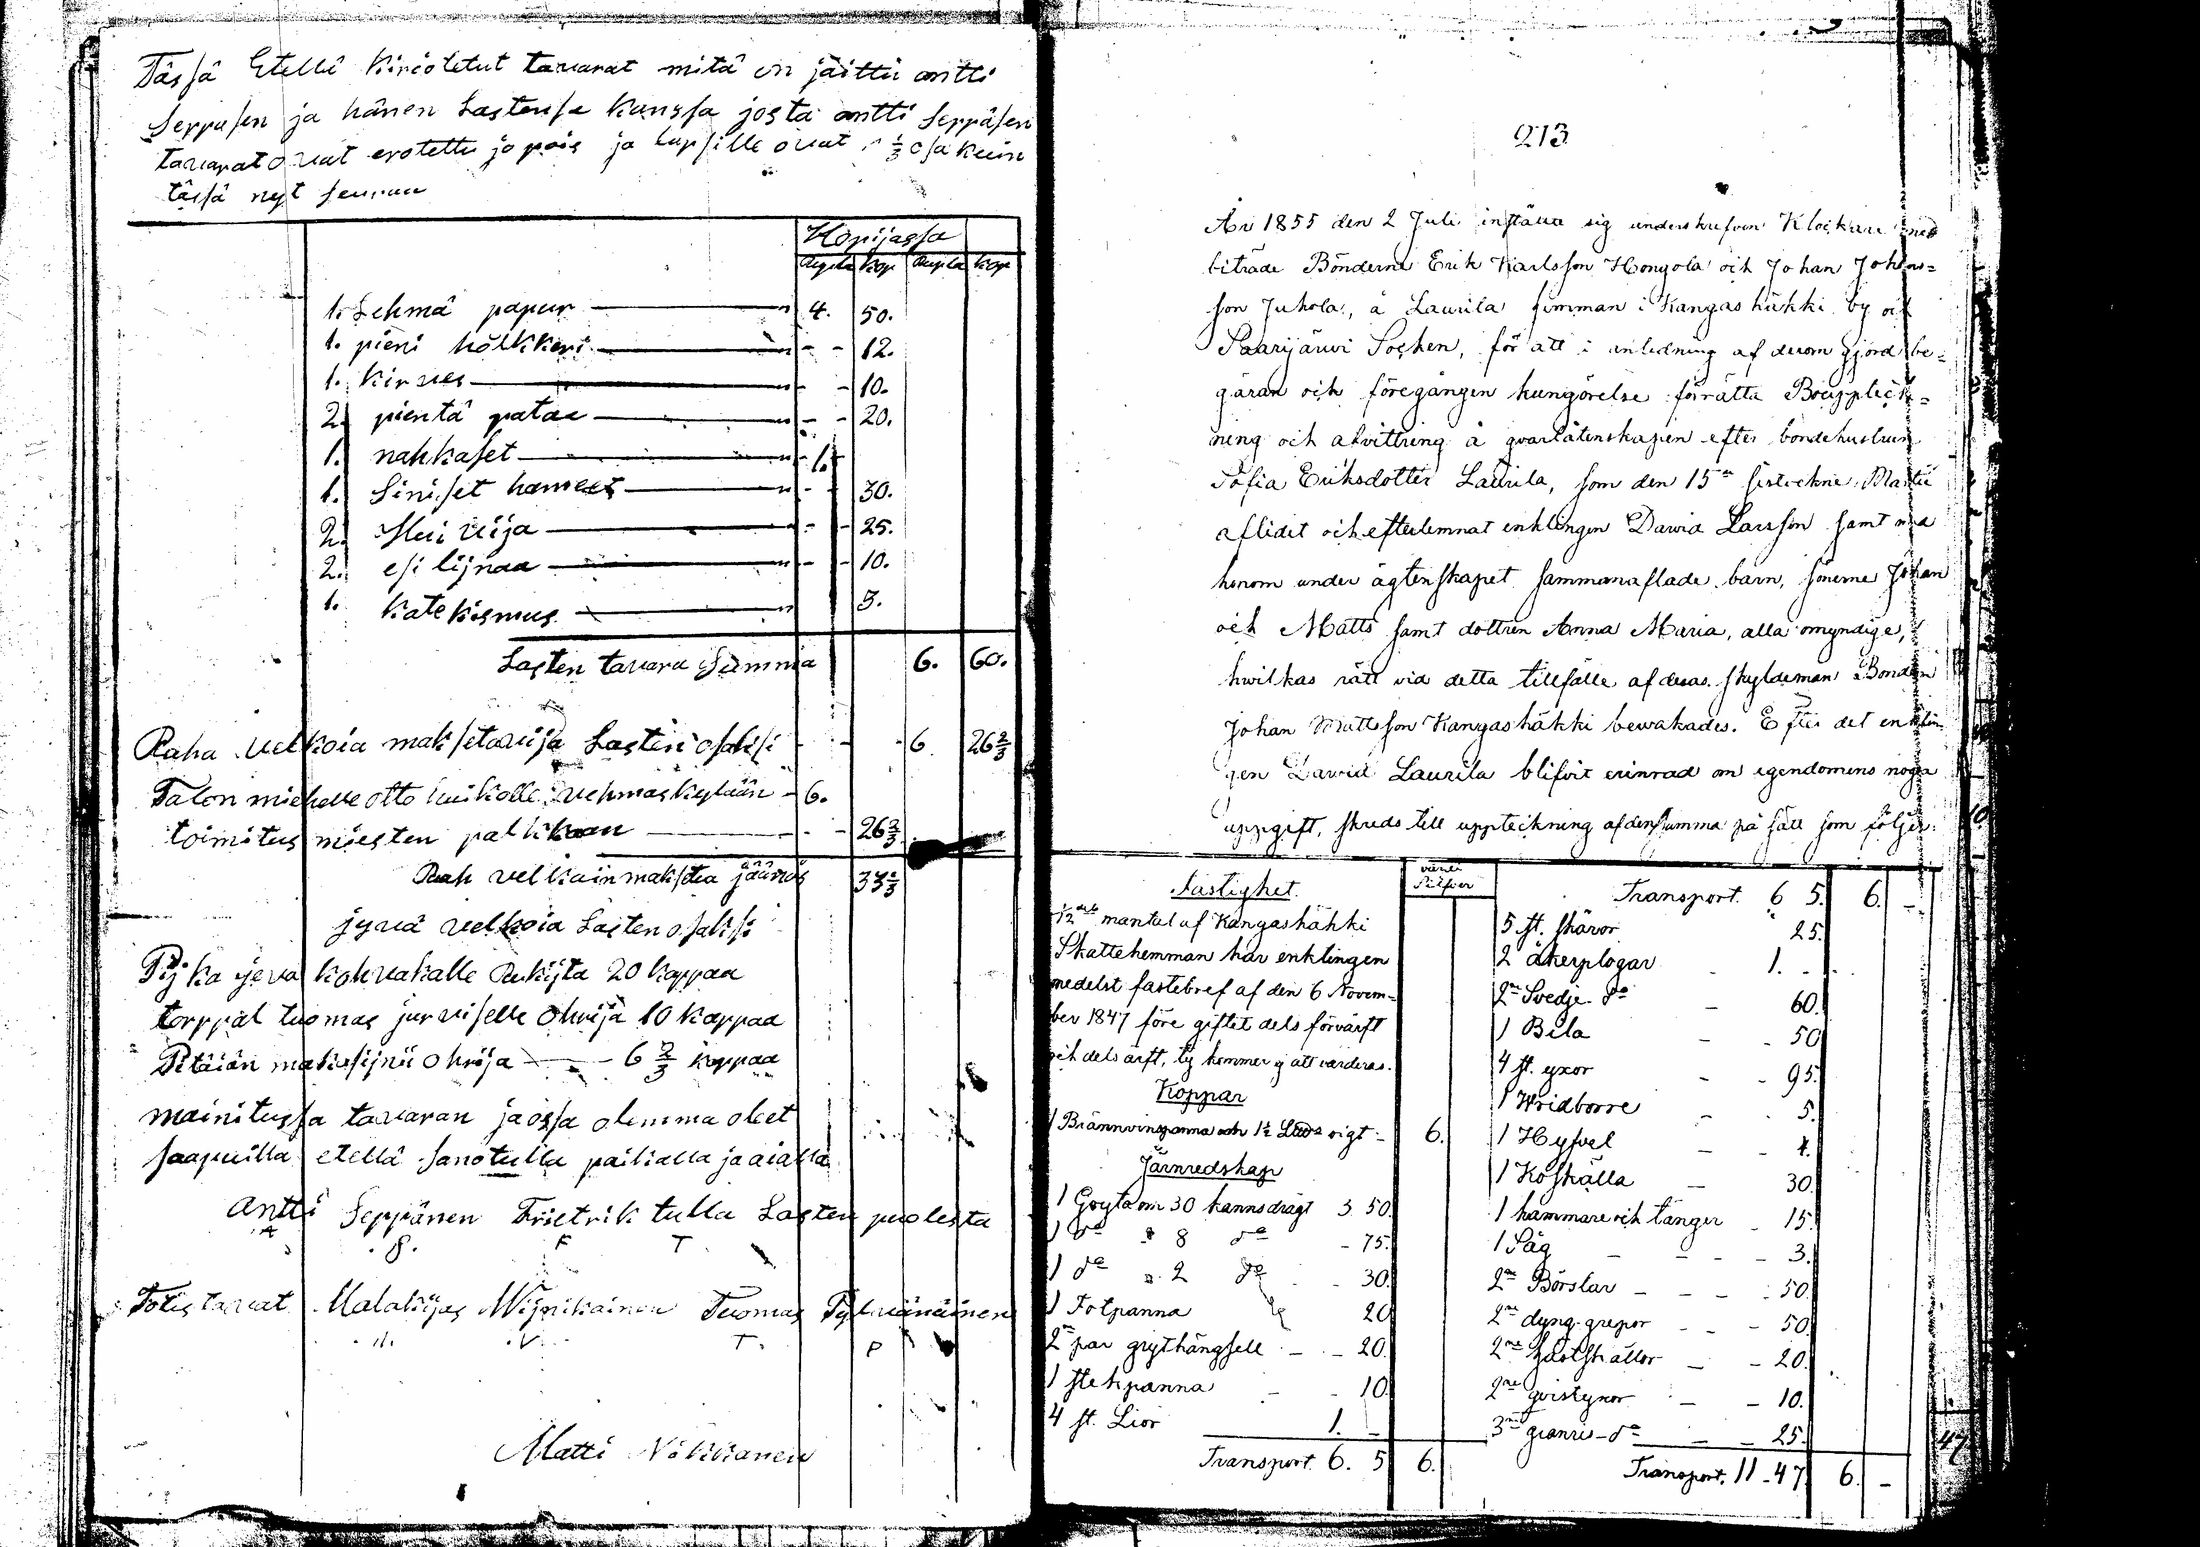 Tässä Etellä Kirioletut tavarat mitä on jäittü antti
Seppäsen ja hänen Lastensa kanssa josta antti Seppäsen
tavarat ovat erotettu jo pois ja lapsille ovat 1/3 osa kuin
tässä nyt seuraa
Kopijassa
Rupla Kop Rupla Kop
1. Lehmä papur 4. 50.
1. pieni hölkkeri 12.
1. Kirves 10.
2. pientä pataa 20.
1. nahkaset 1.
1. Siniset hameet 30.
2. Huivija 25.
2. esilijnaa 10.
1. Katekismus 3.
Lasten tavara Summa 6. 60.
Raha velkoia maksetavija Lasten osaksi 6 26 2/3
Talon miehelle otto huikolle vehmaskylään 6.
toimitus miesten palkkaan 26 2/3
Rah velkain maksetua jäänös 33 1/3
jyvä velkoia Lasten osaksi
Pijka jeva kohvakalle Rukijta 20 kappaa
torppal tuomas jurviselle Ohrija 10 Kappaa
Pitäiän makasijnii Ohrija 6 2/3 kappaa
mainitussa tavaran jaossa olemma oleet
saapuilla etellä sanotulla paikalla ja aialla
Antti Seppänen Frietrik tulla Lasten puolesta
A S. F T.
Totistavat Malakijas Mijnikainen Tuomas Pylvänäinen
M. V. T. P
Matti Nökkanen
213
År 1855 den 2 Juli instälte sig underskrefven Klockare med
biträde Bönderne Erik Karlsson Hongola och Johan Johans=
son Juhola, å Laurila hemman i Kangashäkki by och
Saarijärvi Socken, för att i anledning af derom gjord be=
gäran och föregången kungörelse förrätta Bouppteck=
ning och afvittring å qvarlåtenskapen efter bondehustrun
Sofia Eriksdotter Laurila, som den 15de sistvekne Martii
aflidit och efterlemnat enklingen David Larsson samt med
honom under ägtenskapet sammanaflade barn, sönerne Johan
och Matts samt dottren Anna Maria, alla omyndige,
hwilkas rätt vid detta tillfälle af deras skyldeman Bonden
Johan Mattsson Kangashäkki bewakades. Efter det enklin
gen David Laurila blifvit erinrad om egendomens noga
uppgift, skreds till uppteckning af densamma på sätt som följer:
Fastighet.
Silfver
1/2 mantal af Kangashähki
Skattehemman har enklingen
medelst fastebref af den 6 Novem=
ber 1847 före giftet dels förvärft
och dels ärft, ty kommer ej att värderas.
Koppar
1 Brännvinspanna om 1½ vigt 6.
Järnredskap
1 Gryta om 30 kanns drägt 3 50.
1 do " 8 do 75.
1 do " 2 do 30.
1 Fotpanna 20
2 par grythängsell 20.
1 stekpanna 10.
4 st. Lior 1. -
Transport 6. 5 6.
Transport. 6 5. 6. -
5 st. skäror 25.
2 åkerplogar 1. -
2ne Svedje- do 60.
1 Bila 50
4 st. yxor 95.
1 Wridborre 5.
1 Hyfvel 4.
1 Koskälla 30.
1 hammare och tänger 15.
1 Såg 3.
2ne Börslar 50.
2ne dyng-grepor 50.
2ne hästskällor 20.
2ne qvistyxor 10.
3ne granris-do 25.
Transport. 11 - 47. 6. -